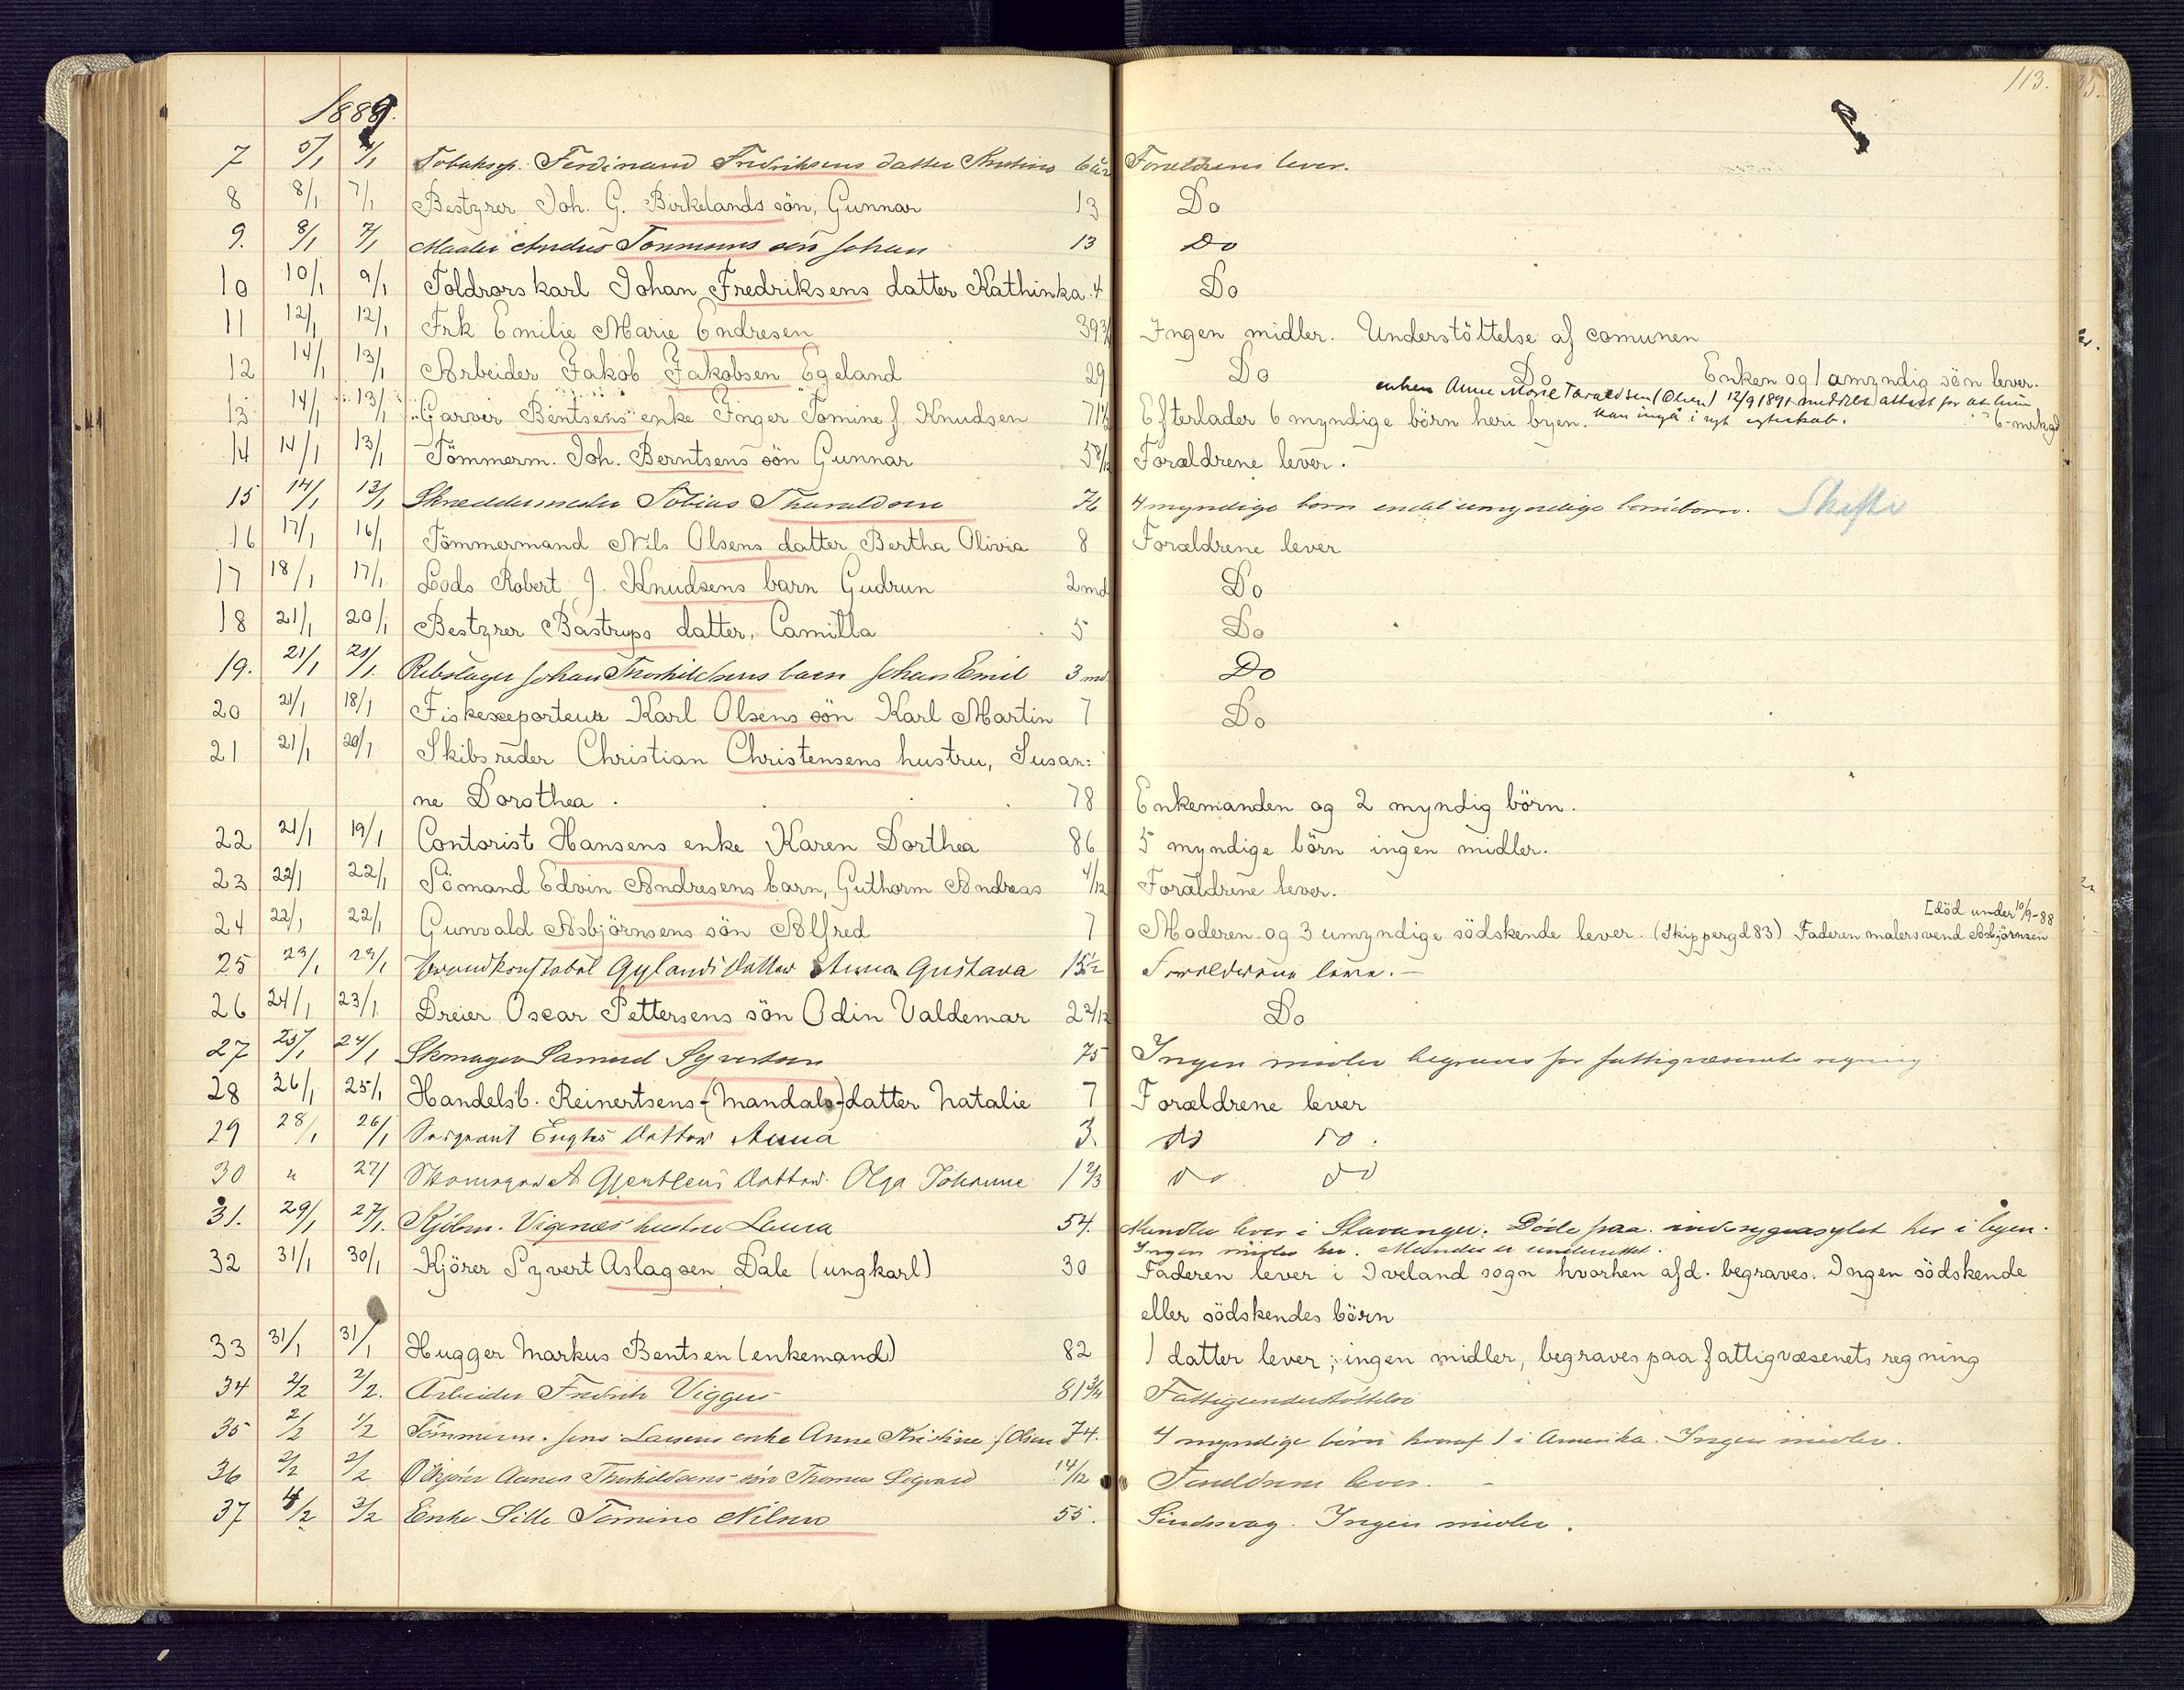 113.
1889.
7 5/1 4/1 Tobakssp. Ferdinand Fredriksens datter Kristine 6 Forældrene lever.
8 8/1 7/1 Bestyrer Joh. G. Birkelands sön, Gunnar 13 Do
9. 8/1 7/1 Maaler Anders Tönnesens sön Johan 13 Do
10 10/1 9/1 Toldrorskarl Johan Fredriksens datter Kathinka. 4 Do
11 12/1 12/1 Frk Emilie Marie Endresen 39 3/4 Ingen midler. Understöttelse af comunen
12 14/1 13/1 Arbeider Jakob Jakobsen Egeland 29 Do Do Enken og 1 amyndig sön lever.
enken Anne Marie Taraldsen (Olsen) 12/9 1891 meddelt attest for at hun
kan indgå i nyt egteskab.
13 14/1 13/1 Garver Bentsens enke Inger Tomine f. Knudsen 71 1/2 Efterlader 6 myndige börn heri byen.
14 14/1 13/1 Tömmerm. Joh. Berntsens sön Gunnar 5 8/12 Forældrene lever.
15 14/1 13/1 Skræddermester Tobias Tharaldsen 76 4 myndige börn endel umyndige börnebörn. Skifte
16 17/1 16/1 Tömmermand Nils Olsens datter Bertha Olivia 8 Forældrene lever
17 18/1 17/1 Lods Robert J. Knudsens barn Gudrun 2 md Do
18 21/1 20/1 Bestyrer Bastrups datter, Camilla 5 Do
19. 21/1 21/1. Rebslager Johan Thorkildsens barn Johan Emil 3 md. Do
20 21/1 18/1 Fiskeexporteur Karl Olsens sön Karl Martin 7 Do
21 21/1 20/1 Skibsreder Christian Christensens hustru, Susan:
ne Dorothea. 78 Enkemanden og 2 myndig börn.
22 21/1 19/1 Contorist Hansens enke Karen Dorthea 86 5 myndige börn ingen midler.
23 22/1 22/1 Sömand Edvin Andresens barn, Guthorm Andreas 4/12 Forældrene lever.
[död under 10/9-88
24 22/1 22/1 Gunvald Asbjörnsens sön Alfred 7 Moderen og 3 umyndige södskende lever. (Skippergd 83) Faderen malersvend Asbjörnsen
25 23/1 23/1 Brandkonstabel Gylands datter Anna Gustava 15 1/2 Forældrene lever.
26 24/1 23/1 Dreier Oscar Pettersens sön Odin Valdemar 2 2/12 Do
27 25/1 24/1 Skomager Samuel Syvertsen 75 Ingen midler begraves for fattigvæsenets regning
28 26/1 25/1 Handelsb. Reinertsens (Mandals-) datter Natalie 7 Forældrene lever
29 28/1 26/1 Sergeant Enghs datter Anna 3. do do.
30 " 27/1 Skomager A Gjentlens datter Olga Johanne 1 2/3 do do
31. 29/1 27/1. Kjöbm. Vigenæs hustru Laura 54. Manden lever i Stavanger. Döde paa sindssygeasylet her i byen.
Ingen midler her. Manden er underrettet.
32 31/1 30/1 Kjörer Syvert Aslagsen Dale (ungkarl) 30 Faderen lever i Iveland sogn hvorhen afd. begraves. Ingen södskende
eller södskendes börn
33 31/1 31/1 Hugger Markus Bentsen (enkemand) 82 1 datter lever; ingen midler, begraves paa fattigvæsenets regning
34 2/2 2/2. Arbeider Fredrik Vigger 81 3/4 Fattigunderstöttelse
35 2/2 1/2 Tömmerm. Jens Larsens enke Anne Kristine f. Olsen 74. 4 myndige börn hvoraf 1 i Amerika. Ingen midler.
36 2/2 2/2 Thorkildsens sön Thomas Sigvard 14/12 Forældrene lever.
37 4/2 3/2 Enke Sille Tomine Nilsen 55. Sindssvag. Ingen midler.